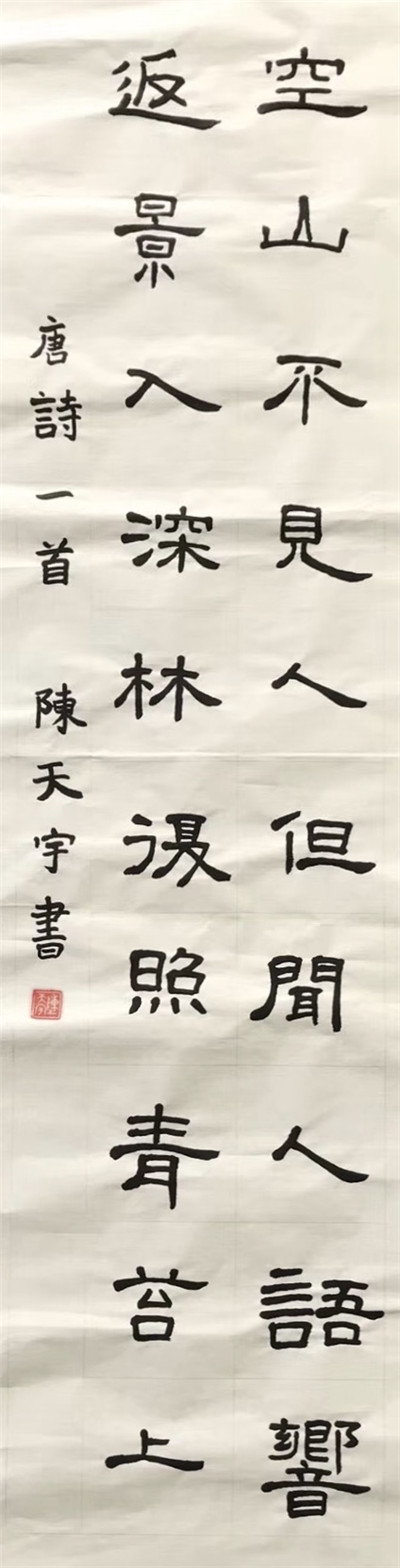 空山不見人但聞人語響
返景入深林復照青苔上
唐詩一首 陳天宇書